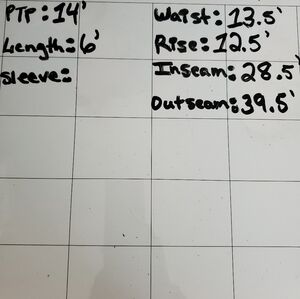 PTP: 14'
Length: 6'
Sleeve:
Waist: 13.5'
Rise: 12.5'
Inseam: 28.5'
Outseam: 39.5'